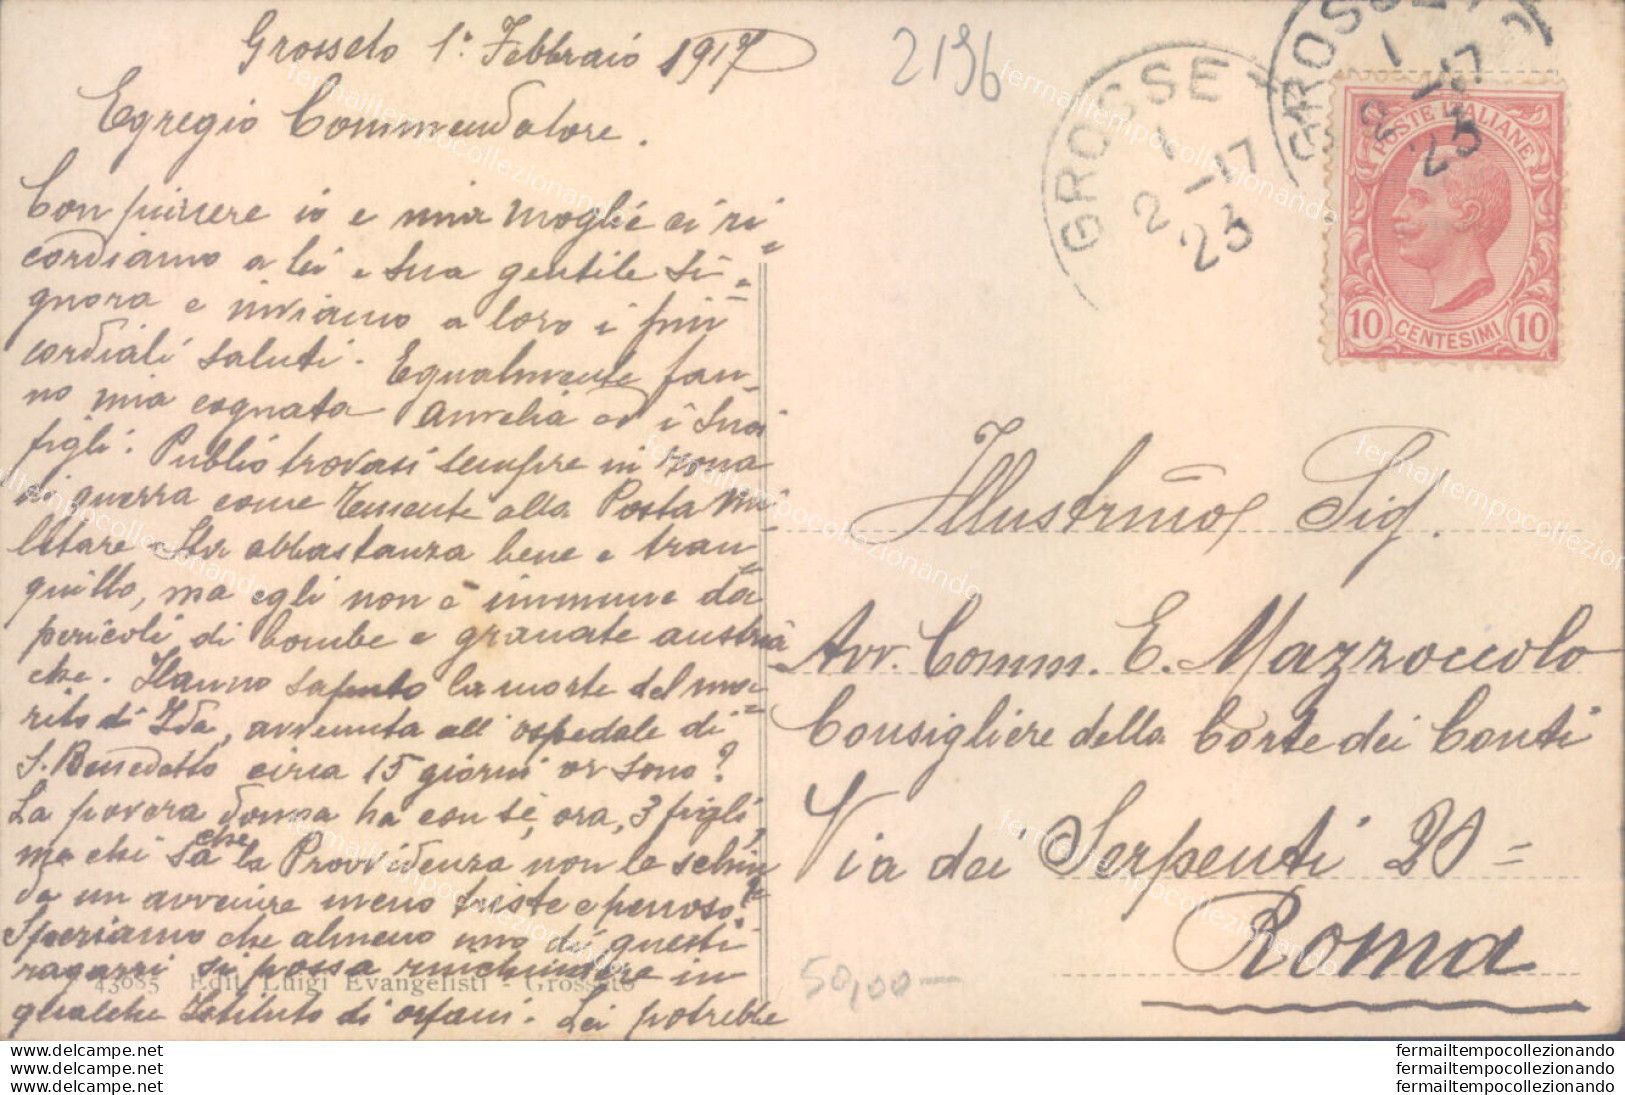 Grosseto 1º Febbraio 1917
2196
Egregio Commendatore.
Con piacere io e mia moglie ci ri=
cordiamo a lei e sua gentile Si=
gnora e inviamo a loro i più
cordiali saluti. Egualmente fan=
no mia cognata Amelia ed i suoi
figli. Publio trovasi sempre in zona
di guerra come Tenente alla Posta Mi=
litare. Sta abbastanza bene e tran=
quillo, ma egli non è immune da
pericoli di bombe e granate austria=
che. Hanno saputo la morte del ma=
rito di Ida, avvenuta all'ospedale di
S. Benedetto circa 15 giorni or sono?
La povera donna ha con sè, ora, 3 figli,
ma chi sa che la Provvidenza non le schiu=
da un avvenire meno triste e penoso?
Speriamo che almeno uno di questi
ragazzi si possa rinchiudere in
qualche Istituto di orfani. Lei potrebbe
43085 Edit. Luigi Evangelisti - Grosseto
GROSSETO
1
2 -17
23
GROSSETO
1
2 -17
23
POSTE ITALIANE
10 CENTESIMI 10
Illustrmo Sig.
Avv. Comm. E. Mazzoccolo
Consigliere della Corte dei Conti
Via dei Serpenti 20=
Roma
50,00—
www.delcampe.net
www.delcampe.net
www.delcampe.net
fermailtempocollezionando
fermailtempocollezionando
fermailtempocollezionando